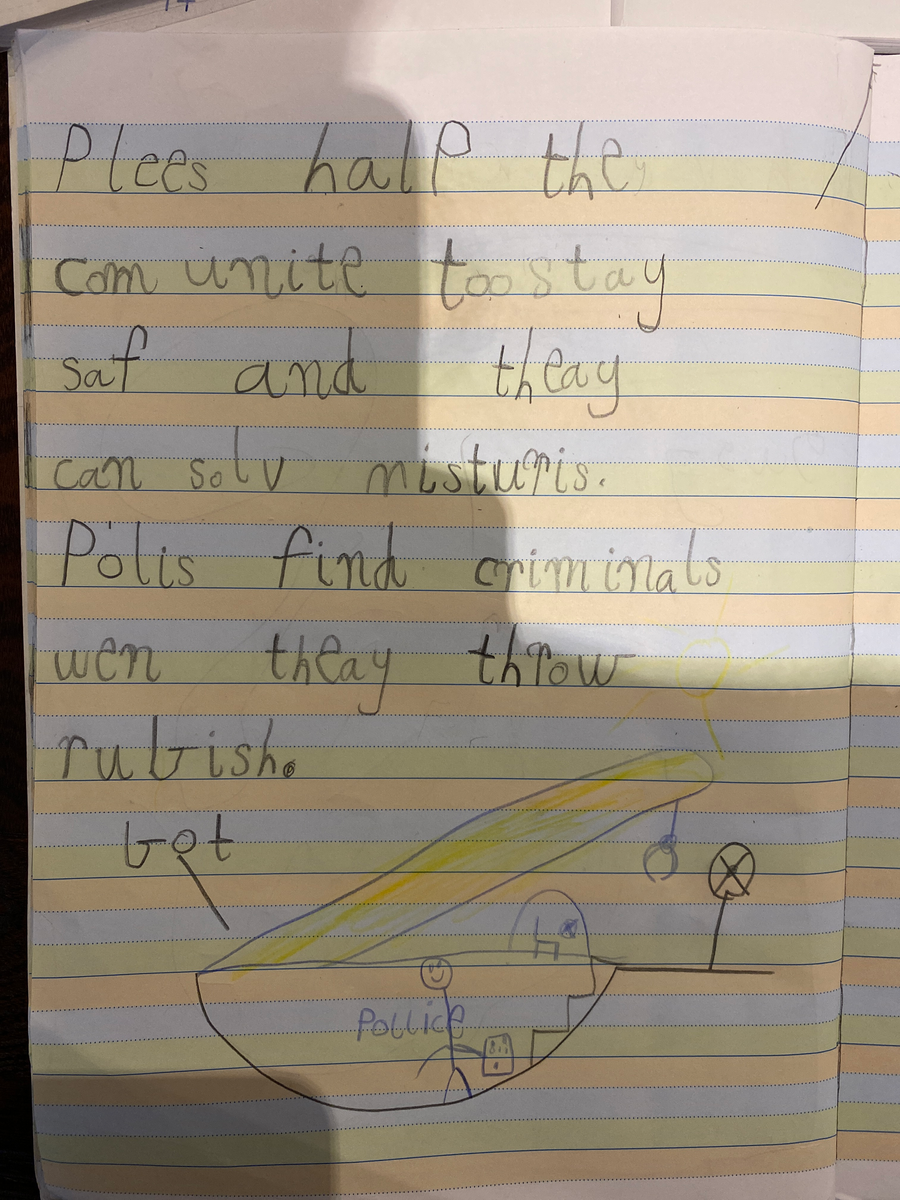 Plees half the
com unite too stay
saf and theay
can solv misturis.
Polis find criminals
wen theay throw
rubish.
bot
Pollice